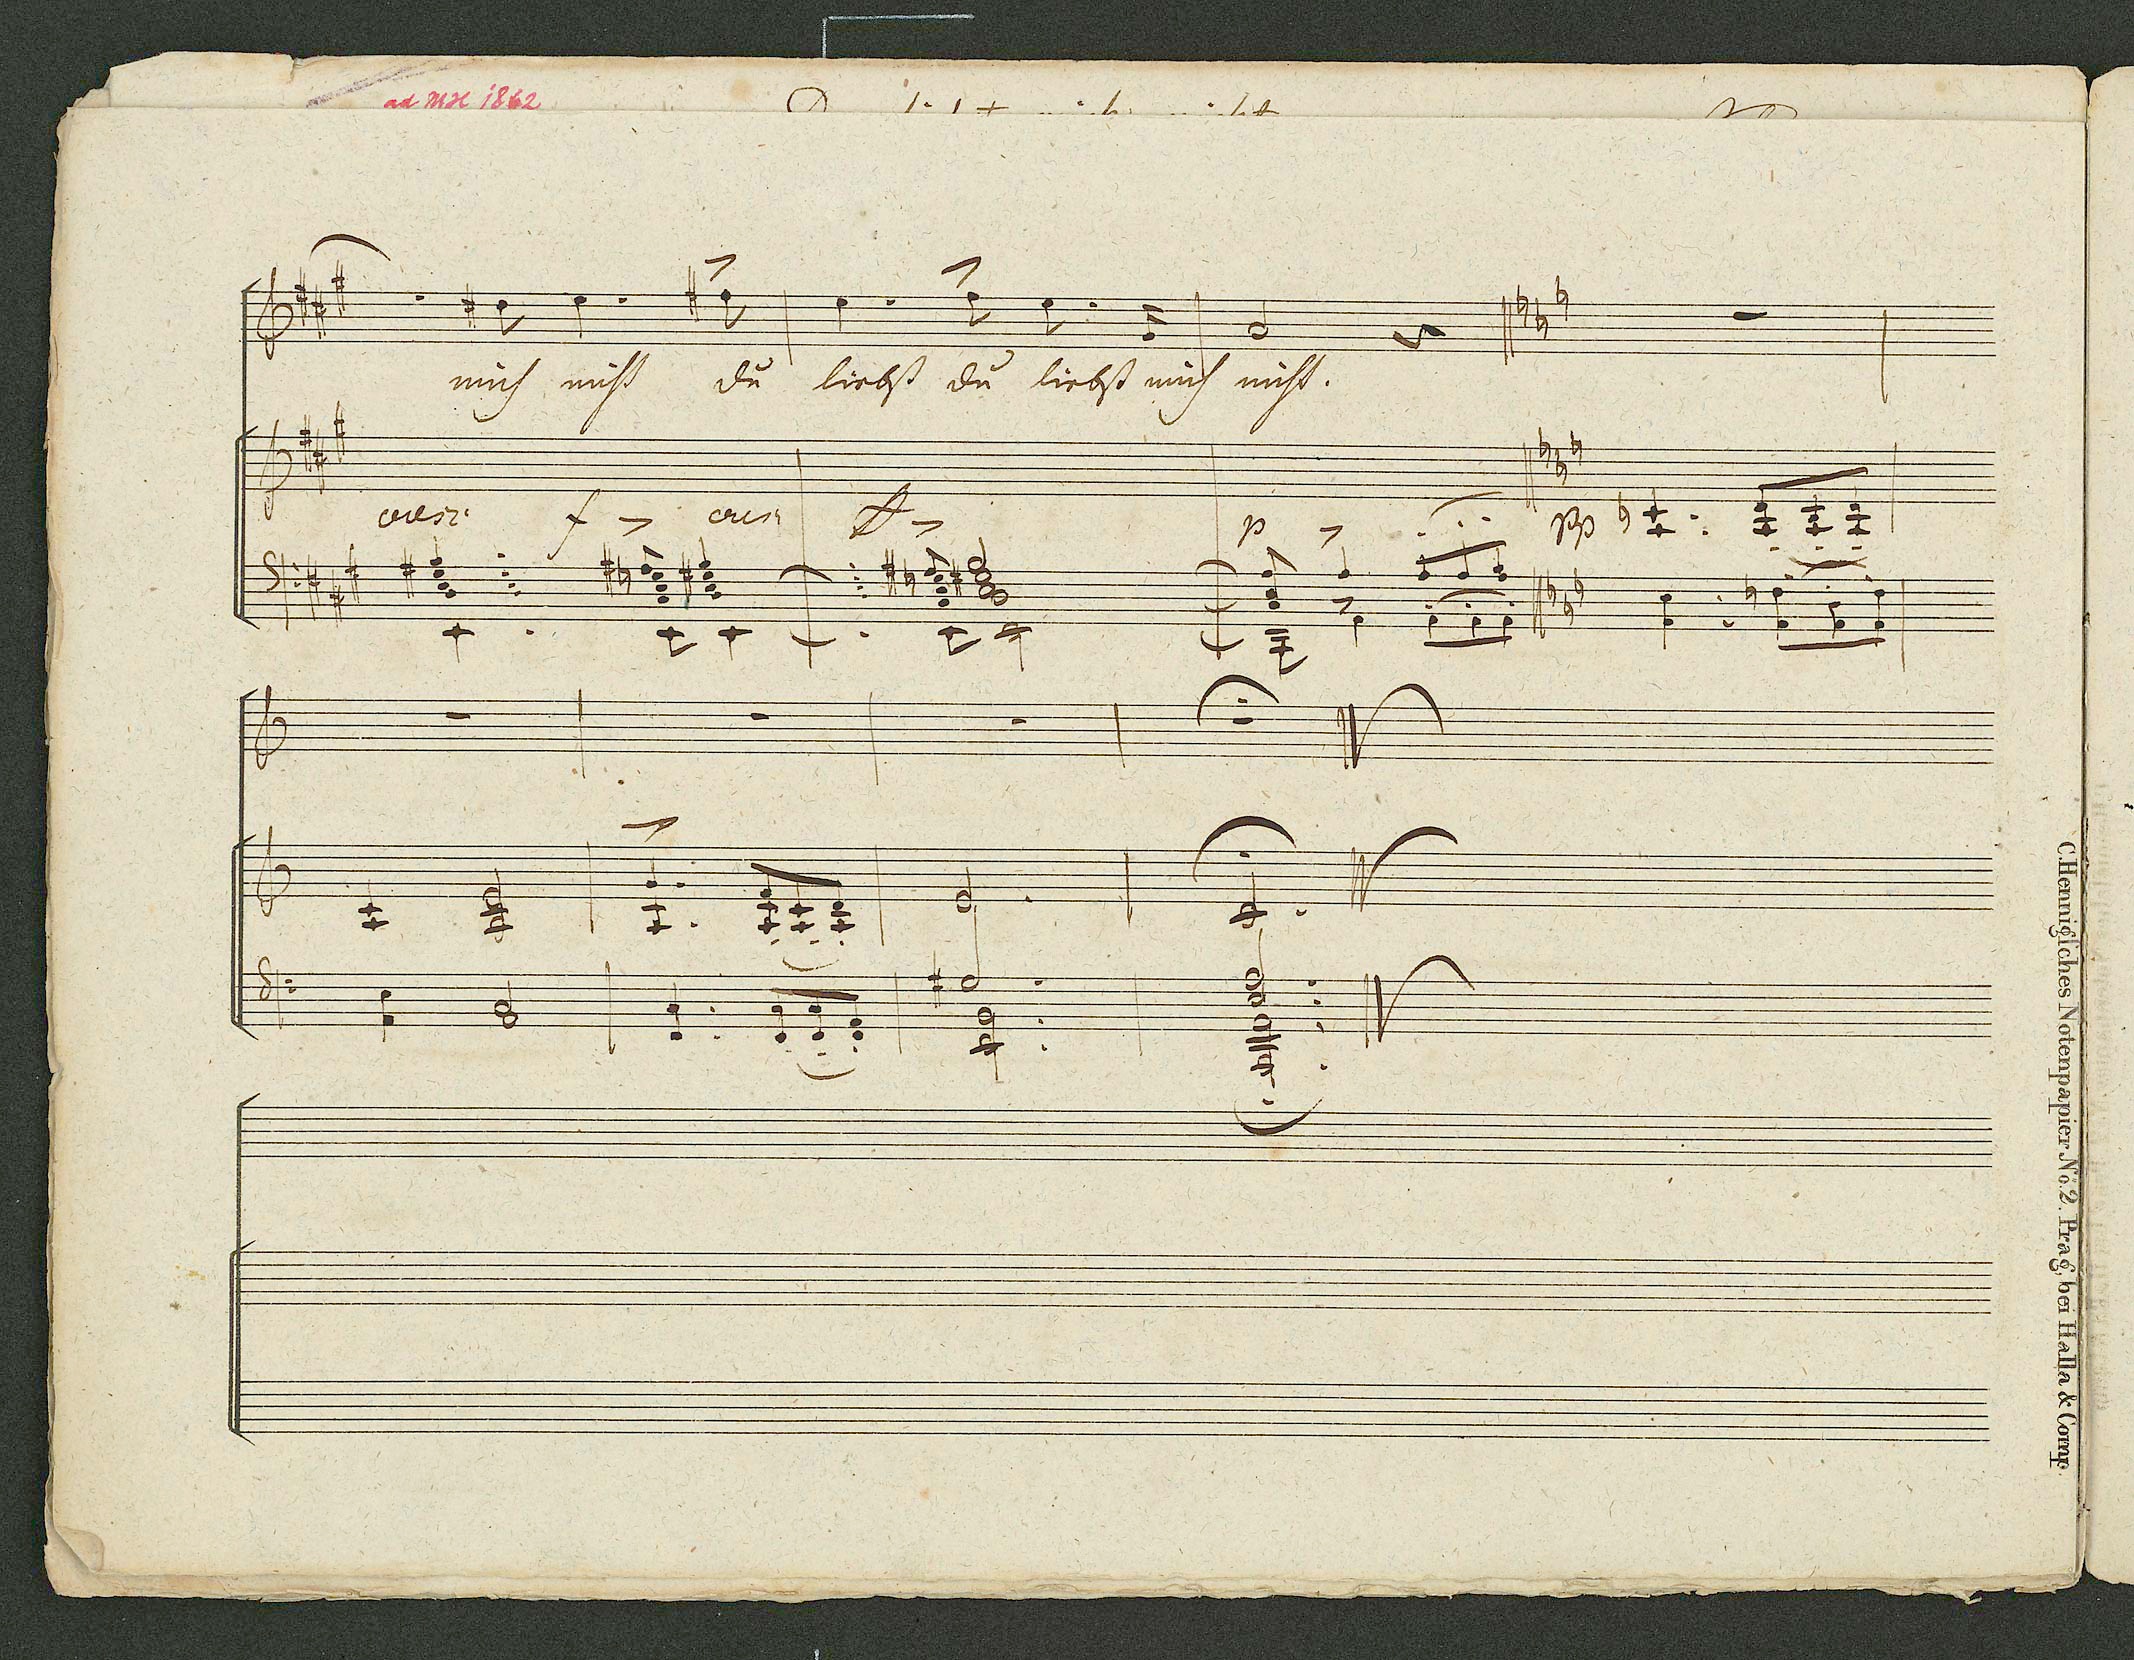 ad MH 1862
mich nicht du liebst du liebst mich nicht.
cresc f cresc ff p pp
C. Hennigsches Notenpapier No. 2. Prag, bei Halla & Comp.